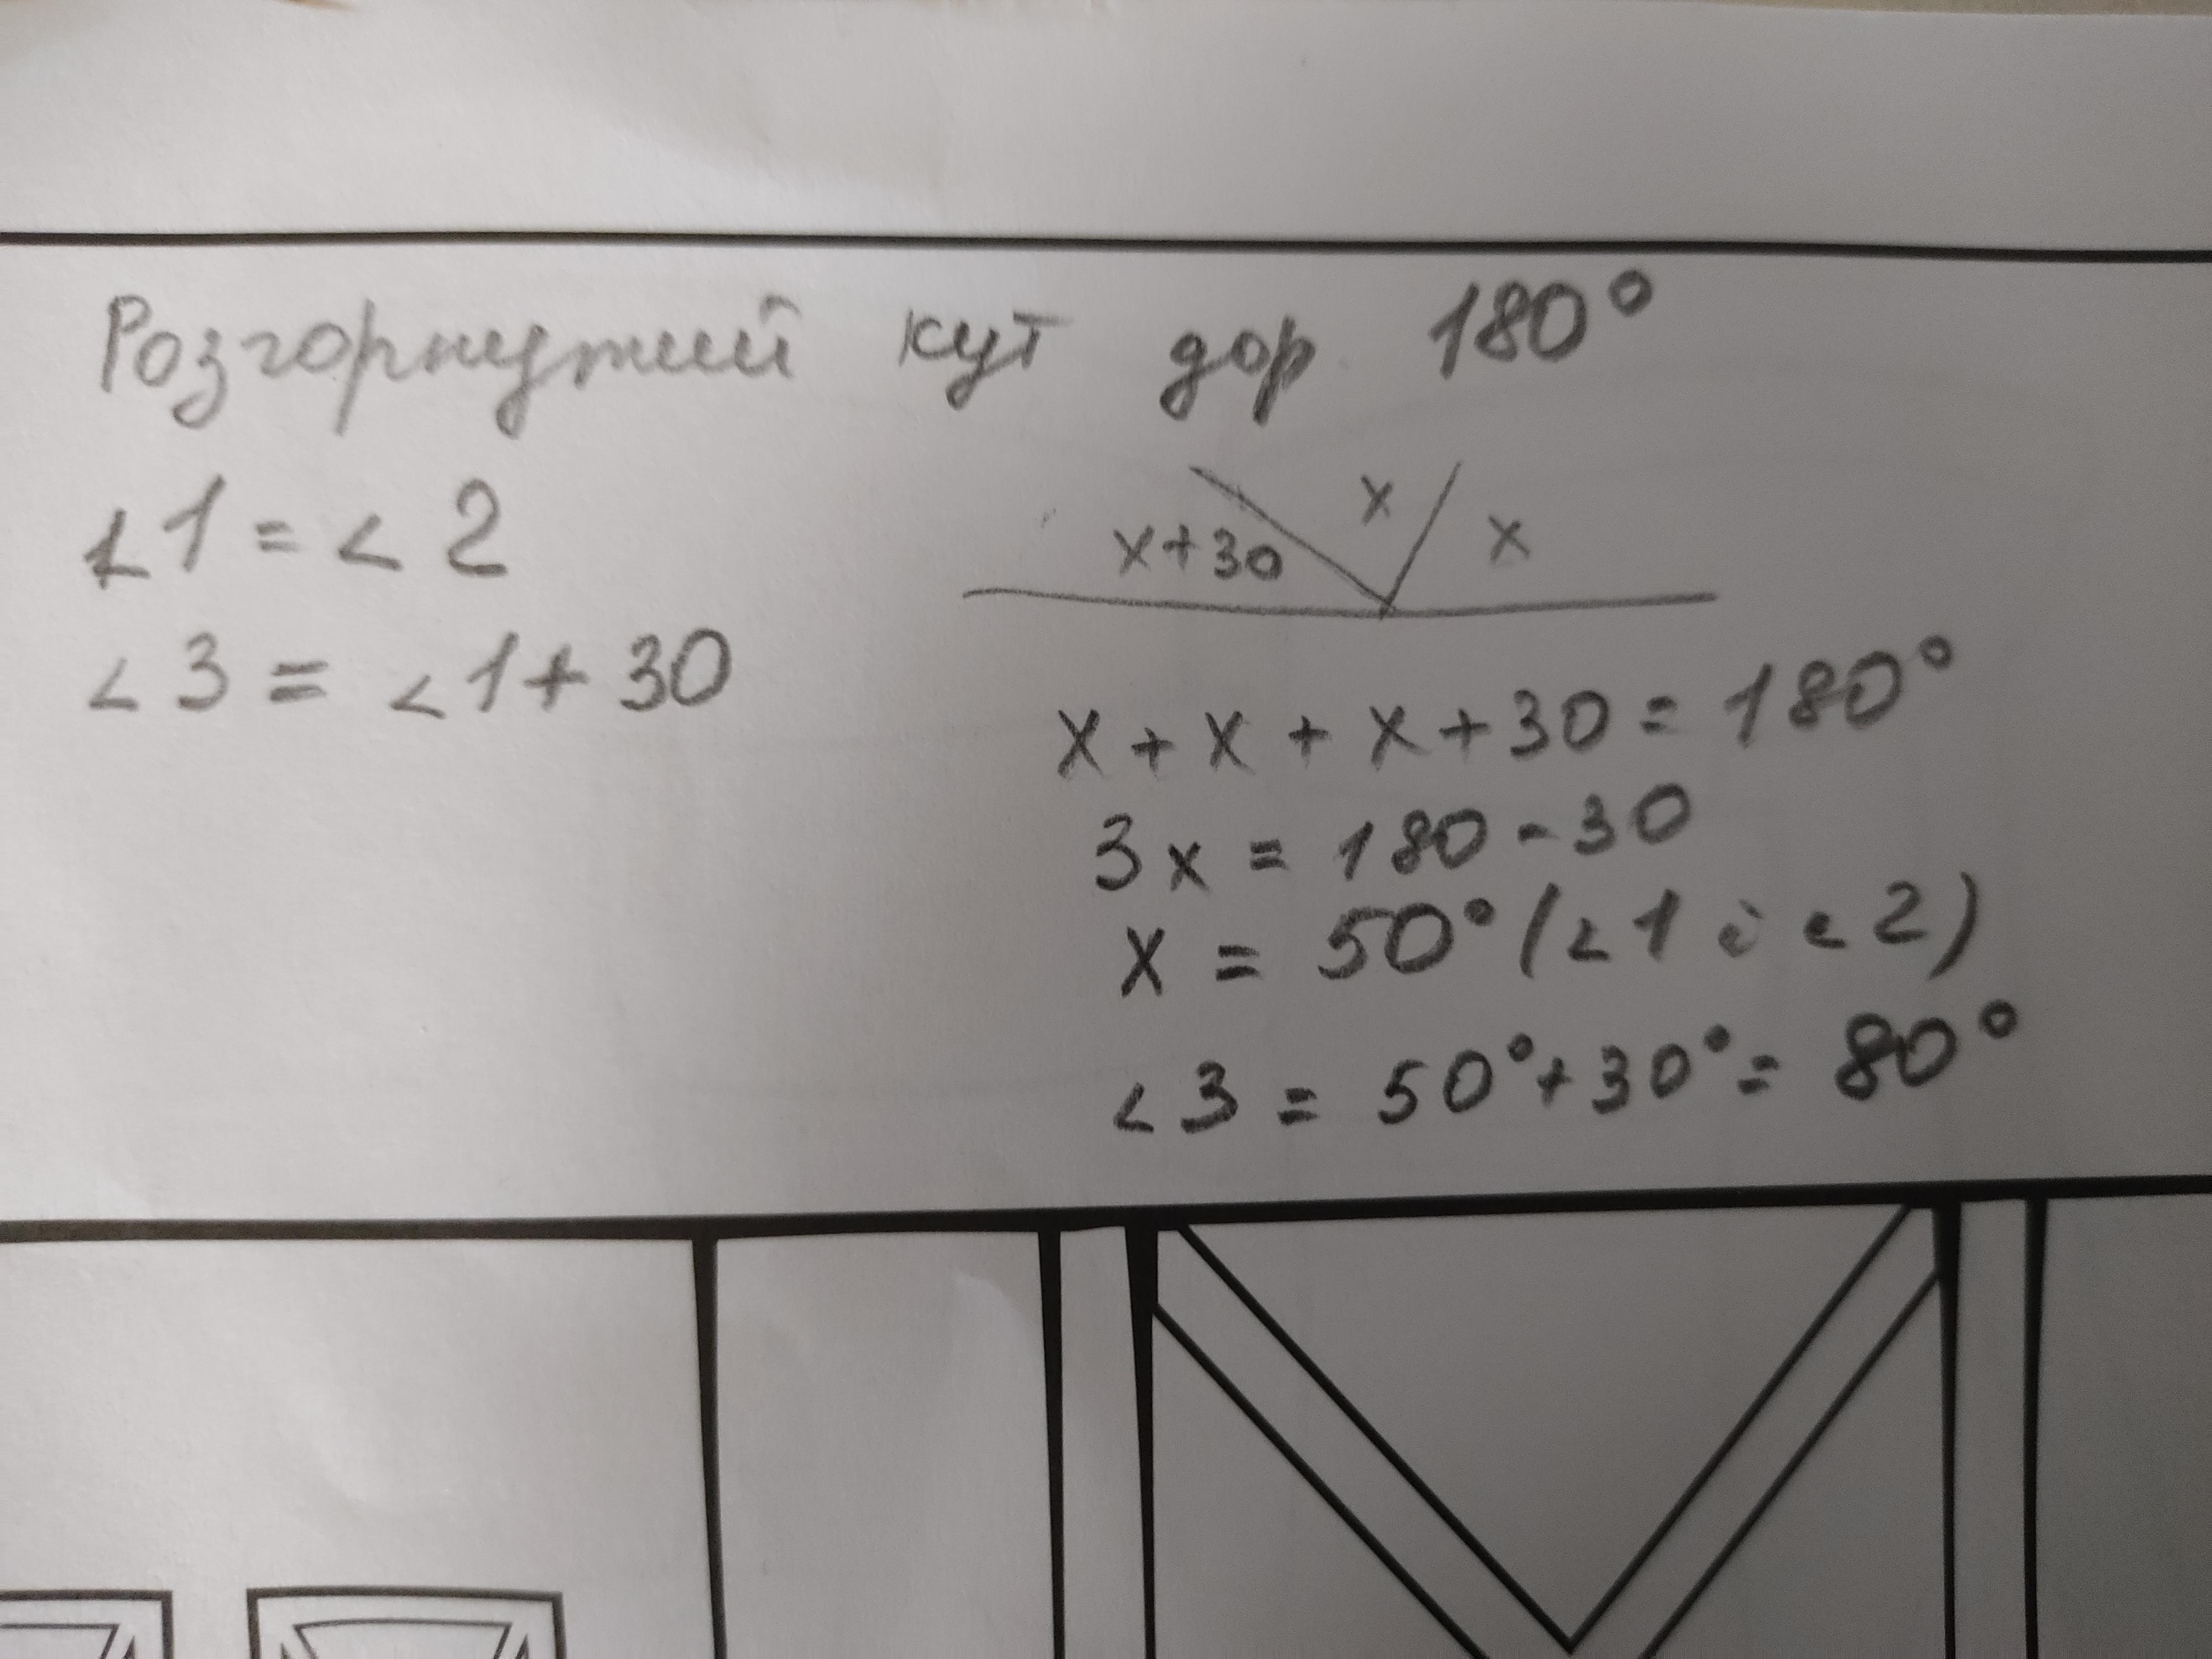 Розгорнутий кут дор. 180°
∠1 = ∠2
∠3 = ∠1 + 30
x+30 x x
x + x + x + 30 = 180°
3x = 180 - 30
x = 50° (∠1 і ∠2)
∠3 = 50° + 30° = 80°